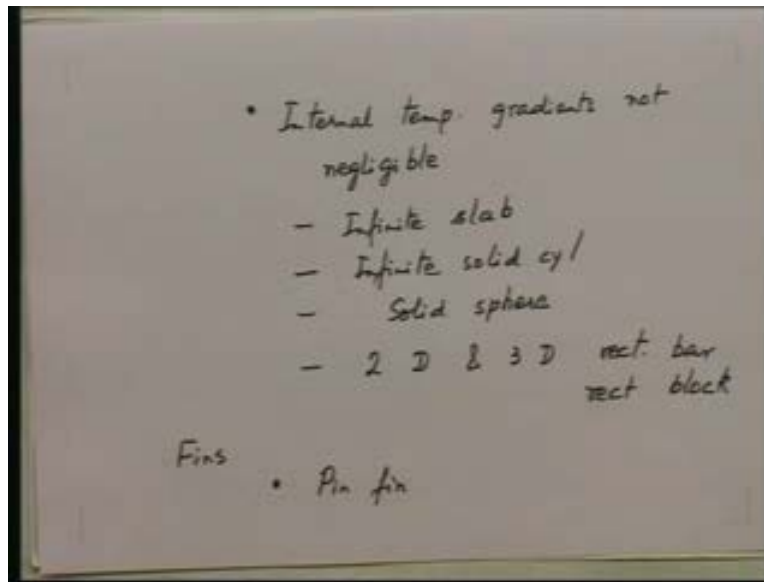 • Internal temp. gradients not
negligible
— Infinite slab
— Infinite solid cyl
— Solid sphere
— 2 D & 3 D rect. bar
rect block
Fins
• Pin fin